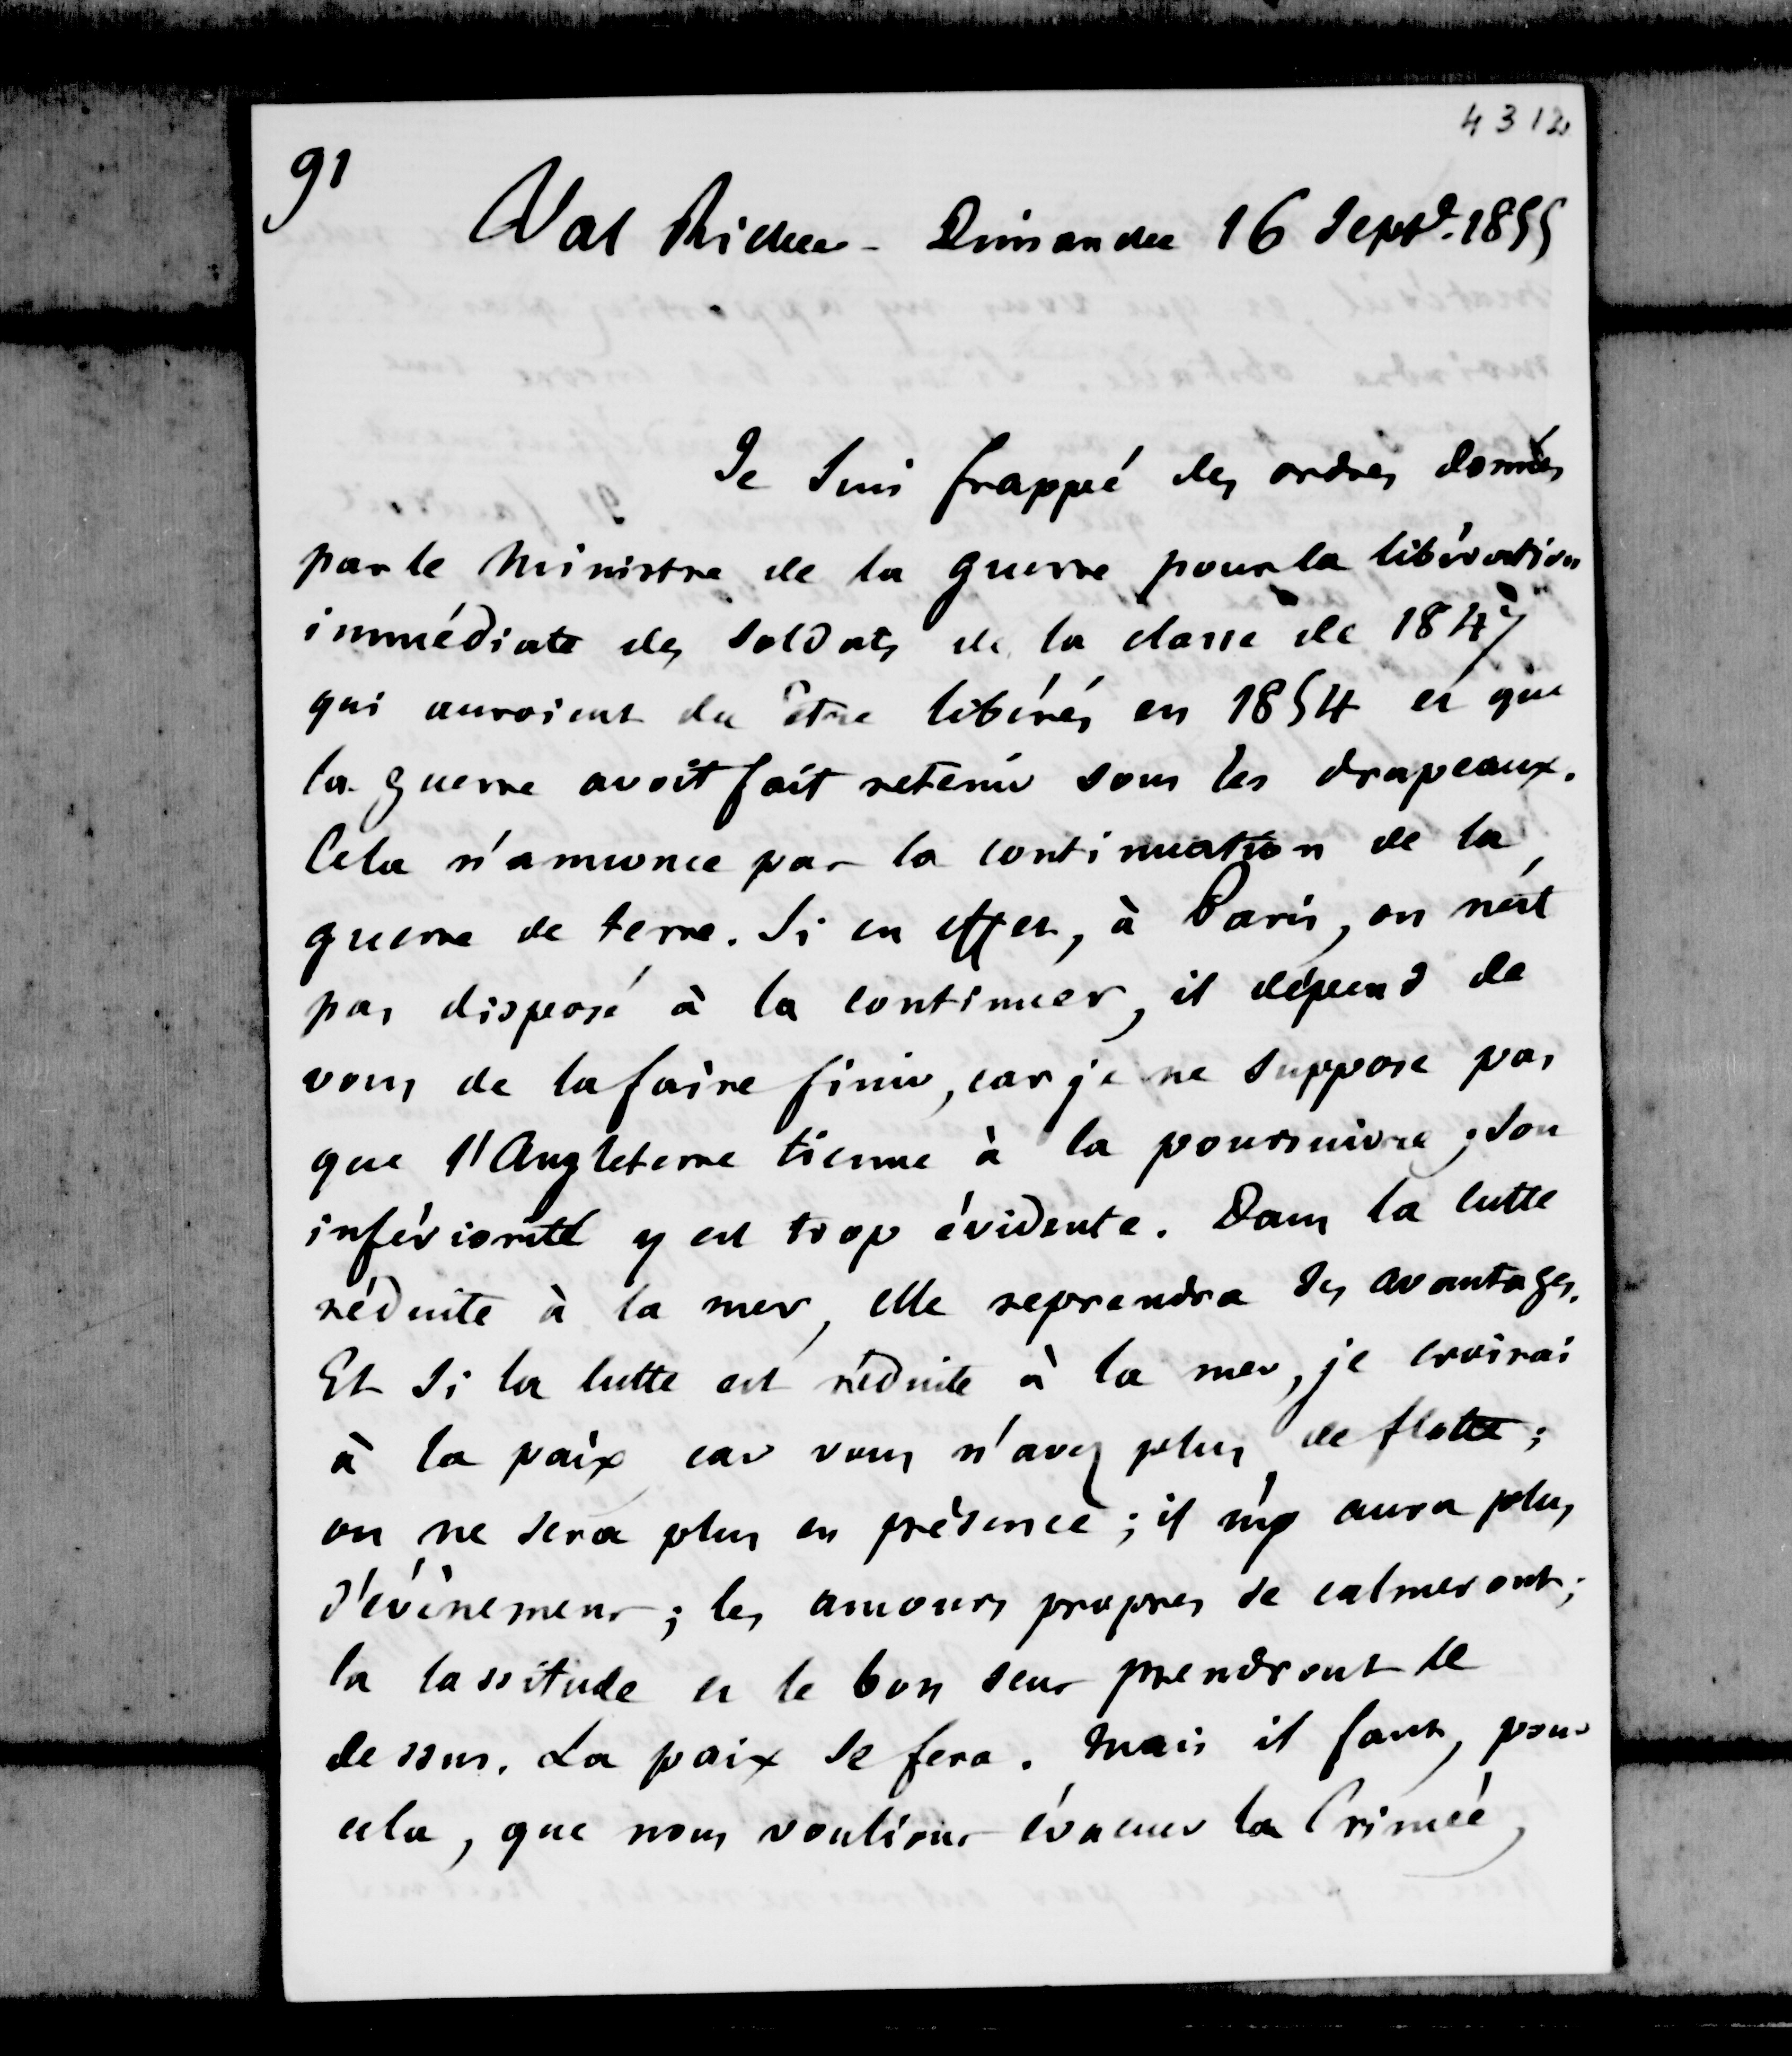 4312
91
Val Richer - Dimanche 16 Septe. 1855
Je suis frappé des ordres donnés
par le Ministre de la guerre pour la libération
immédiate des soldats de la classe de 1847
qui auroient du être libérés en 1854 et que
la guerre avoit fait retenir sous les drapeaux.
Cela n'annonce pas la continuation de la
guerre de terre. Si en effet, à Paris, on n'est
pas disposé à la continuer, il dépend de
vous de la faire finir, car je ne suppose pas
que l'Angleterre tienne à la poursuivre ; son
infériorité y est trop évidente. Dans la lutte
réduite à la mer, elle reprendra ses avantages.
Et si la lutte est réduite à la mer, je croirai
à la paix car vous n'avez plus de flotte ;
on ne sera plus en présence ; il n'y aura plus
d'évènemens ; les amours propres se calmeront ;
la lassitude et le bon sens prendront le
dessus. La paix se fera. Mais il faut, pour
cela, que nous voulions évacuer la Crimée,